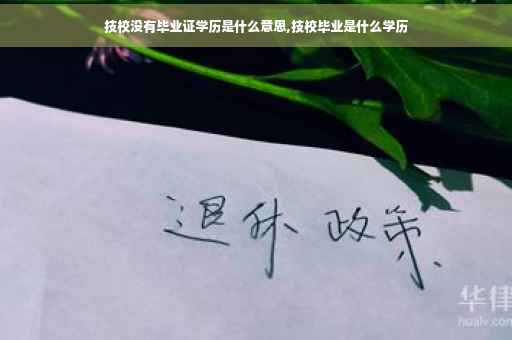 技校没有毕业证学历是什么意思,技校毕业是什么学历
退休 政策
华律
hualv.com